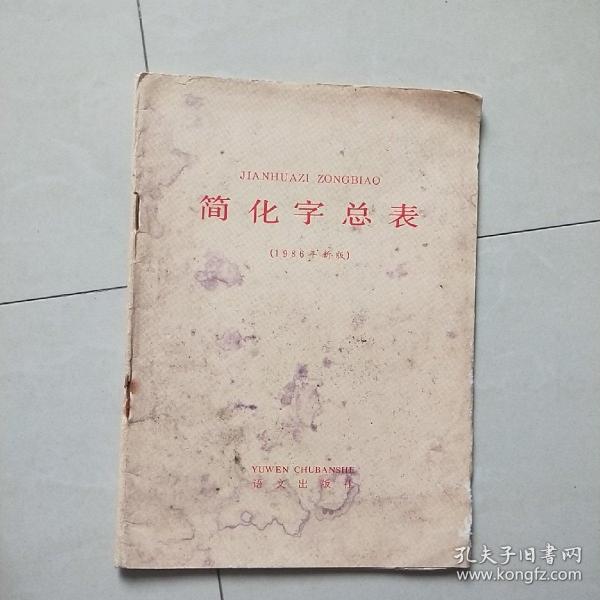 JIANHUAZI ZONGBIAO
简化字总表
(1986年新版)
YUWEN CHUBANSHE
语文出版社
孔夫子旧书网
www.kongfz.com